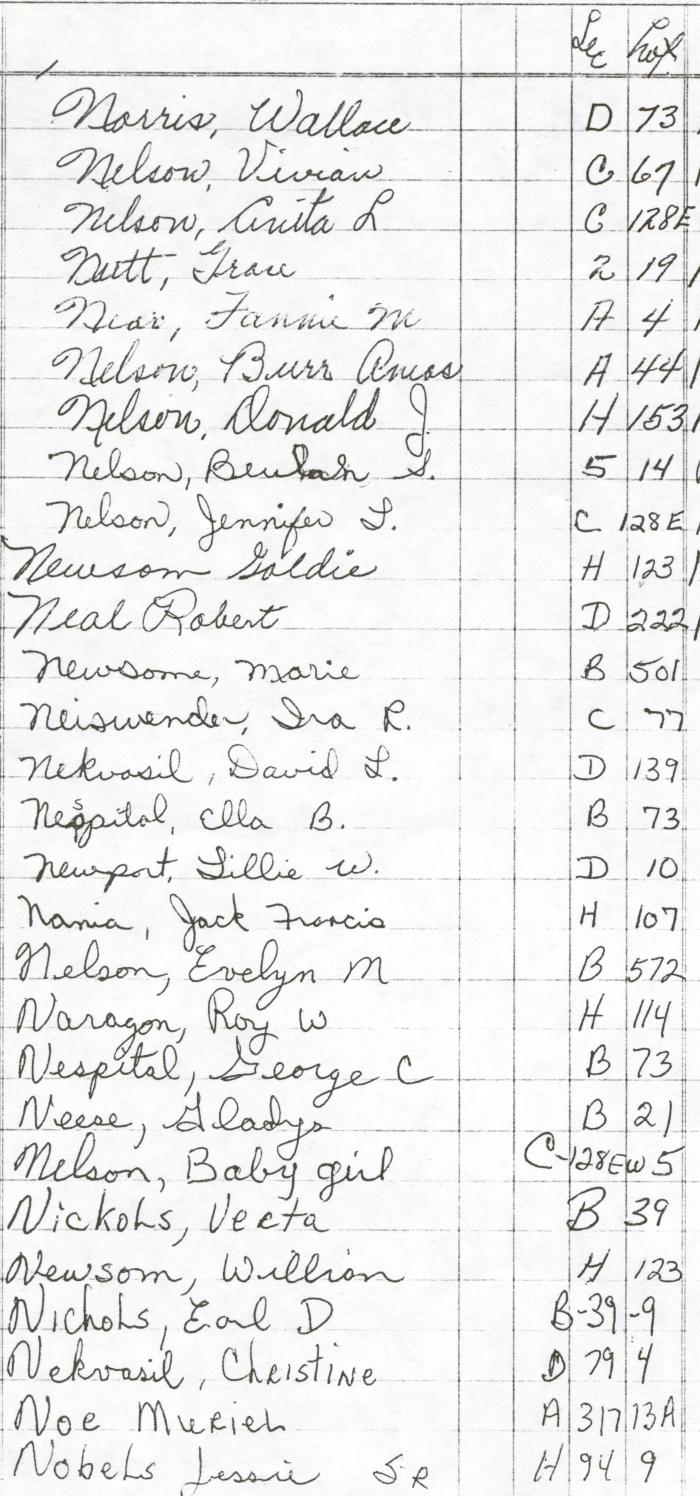 Sec Lot
Norris, Wallace D 73
Nelson, Vivian C 67
Nelson, Anita L C 128E
Nutt, Grace 2 19
Near, Fannie M A 4
Nelson, Burr Amos A 44
Nelson, Donald J. H 153
Nelson, Beulah S. 5 14
Nelson, Jennifer L. C 128E
Newsom Goldie H 123
Neal Robert D 222
Newsome, Marie B 501
Neiswender, Ira R. C 77
Nekvasil, David L. D 139
Nespital, Ella B. B 73
Newport, Lillie W. D 10
Nania, Jack Francis H 107
Nelson, Evelyn M B 572
Naragon, Roy W H 114
Nespital, George C B 73
Neese, Gladys B 21
Nelson, Baby girl C-128EW 5
Nickols, Verta B 39
Newsom, William H 123
Nichols, Earl D B-39-9
Nekvasil, Christine D 79 4
Noe Muriel A 317 13A
Nobels Jessie SR H 94 9